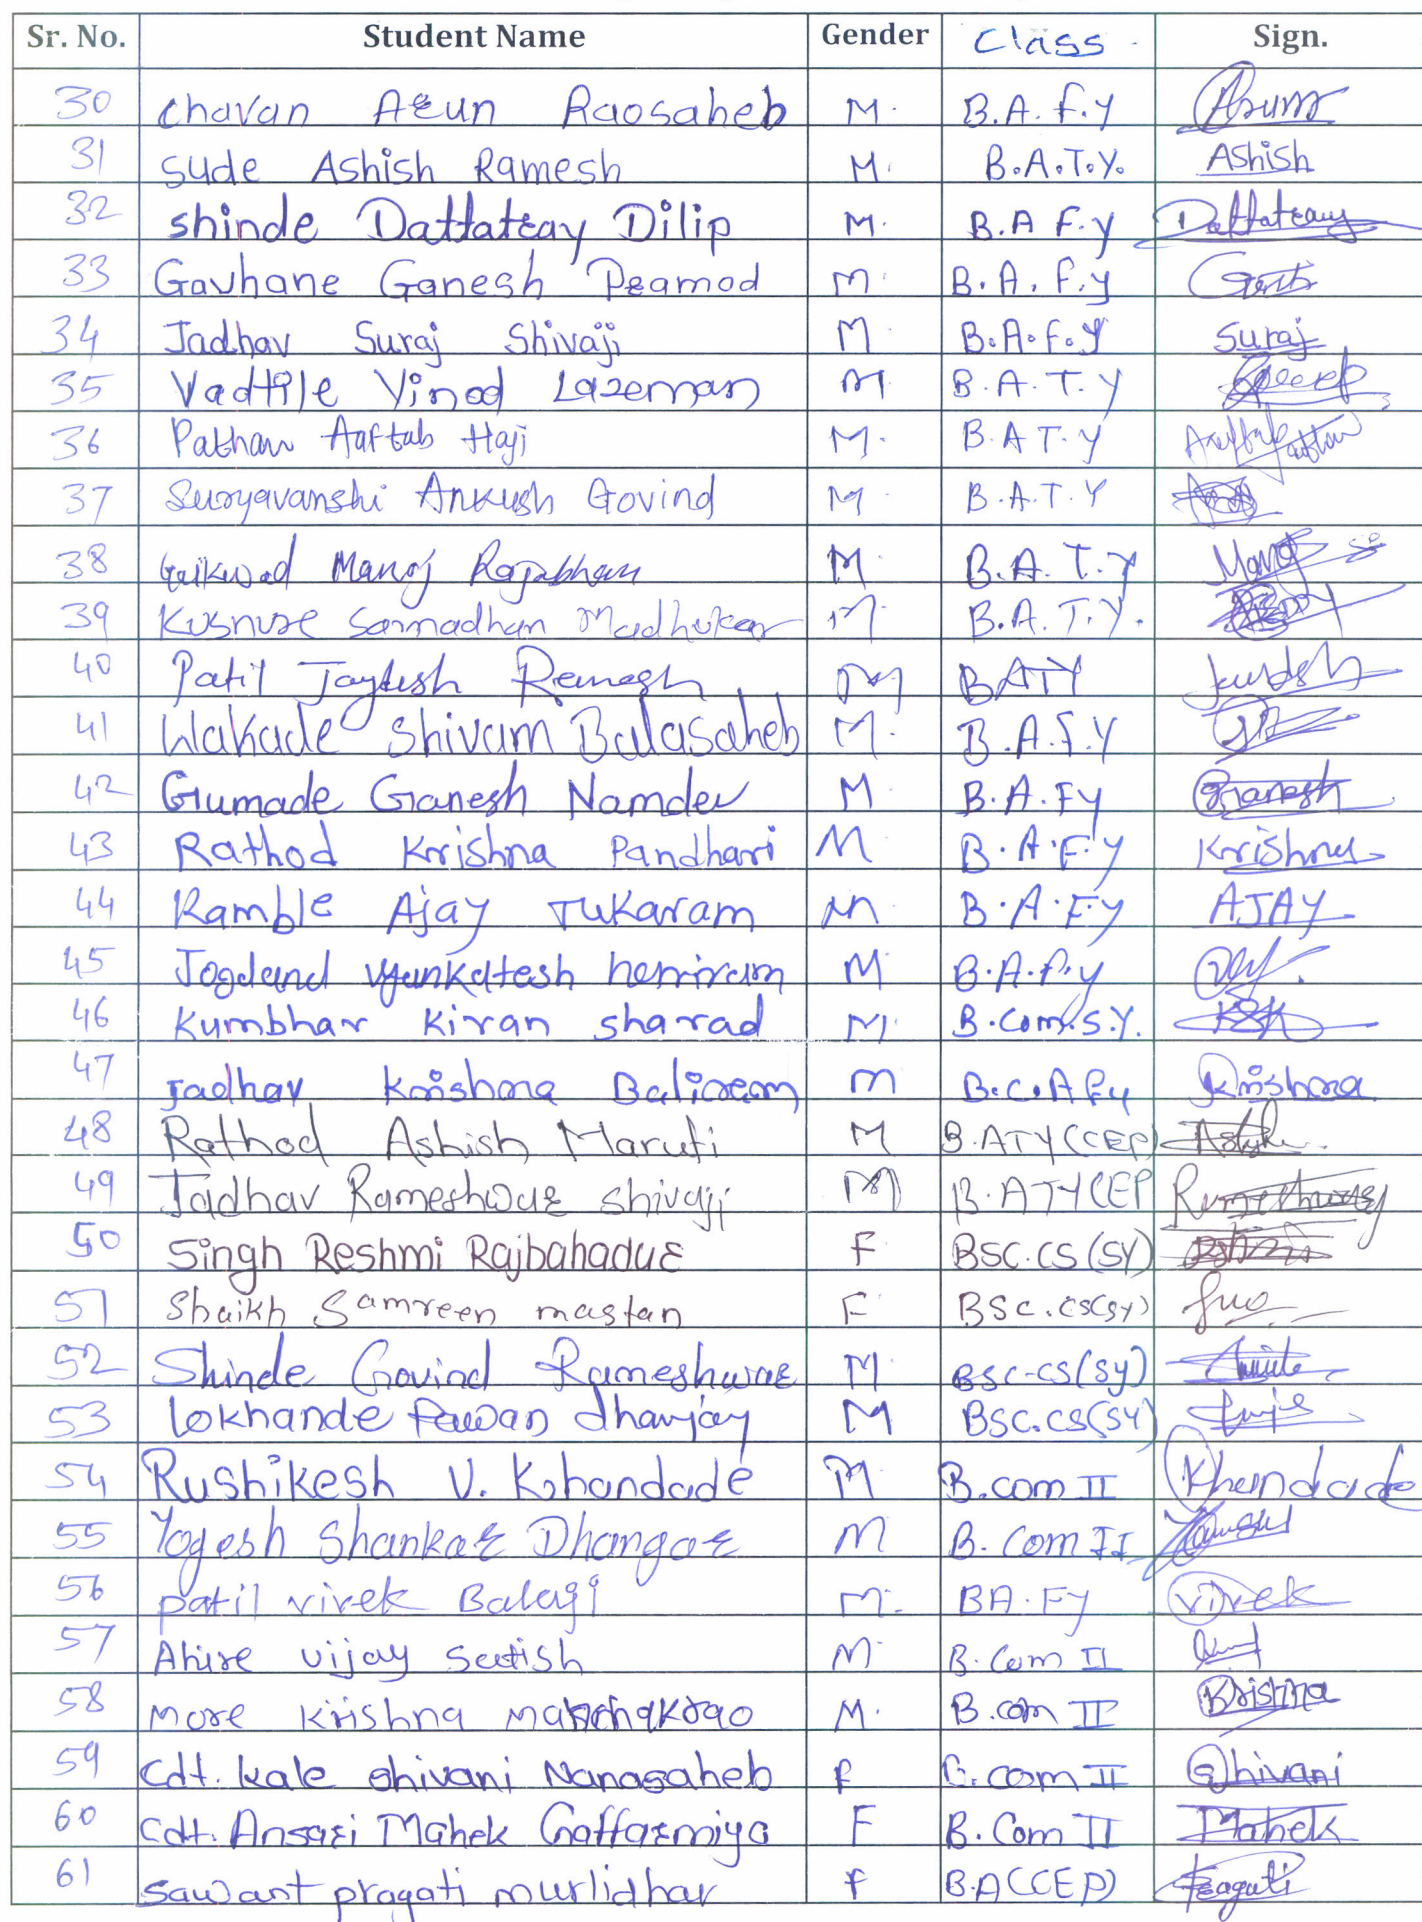 Sr. No. Student Name Gender Class Sign.
30 Chavan Arun Raosaheb M. B.A. F.y Arun
31 Sude Ashish Ramesh M. B.A.T.Y. Ashish
32 Shinde Dattatray Dilip M. B.A F.y Dattatray
33 Gavhane Ganesh Pramod M. B.A. F.y
34 Jadhav Suraj Shivaji M B.A.F.Y Suraj
35 Vadtile Vinod Laxeman M B.A.T.Y
36 Pathan Aaftab Haji M. B.A T.y
37 Suryavanshi Ankush Govind M B.A.T.Y
38 Gaikwad Manoj Rajabhau M B.A. T.y Manoj
39 Kusnure Sarmadhan Madhukar M. B.A.T.Y.
40 Patil Ramesh M BATY
41 Wakade Shivam Balasaheb M. B.A.F.Y
42 Gumade Ganesh Namdev M B.A.Fy Ganesh
43 Rathod Krrishna Pandhari M B.A.F.y Krrishna
44 Kamble Ajay Tukaram M B.A.F.y AJAY
45 Jogdand Vyankatesh M B.A.F.y
46 Kumbhar Kiran sharad M. B.Com.S.Y.
47 Jadhav Krishna Baliram M B.C.A F.y Krishna
48 Rathod Ashish Maruti M B.ATY(CEP)
49 Jadhav Rameshwar shivaji M B.ATY(CEP Rameshwar
50 Singh Reshmi Rajbahadur F BSC.CS (SY)
51 Shaikh Samreen mastan F BSc.cs(sy)
52 Shinde Govind Rameshwar M BSC-CS(SY)
53 lokhande Pawan dhanjay M BSC.CS(SY)
54 Rushikesh V. Khandade M B.com II Khandade
55 Yogesh Shankar Dhangar M B. Com II
56 patil vivek Balaji M. BA.FY vivek
57 Ahire vijay Satish M B.Com II
58 more krishna M. B.com II Krishna
59 Cdt. kale shivani Nanasaheb F B.com II Shivani
60 Cdt. Ansari Mahek Gaffarmiya F B.Com II Mahek
61 sawant pragati murlidhar F B.A(CCEP) Pragati